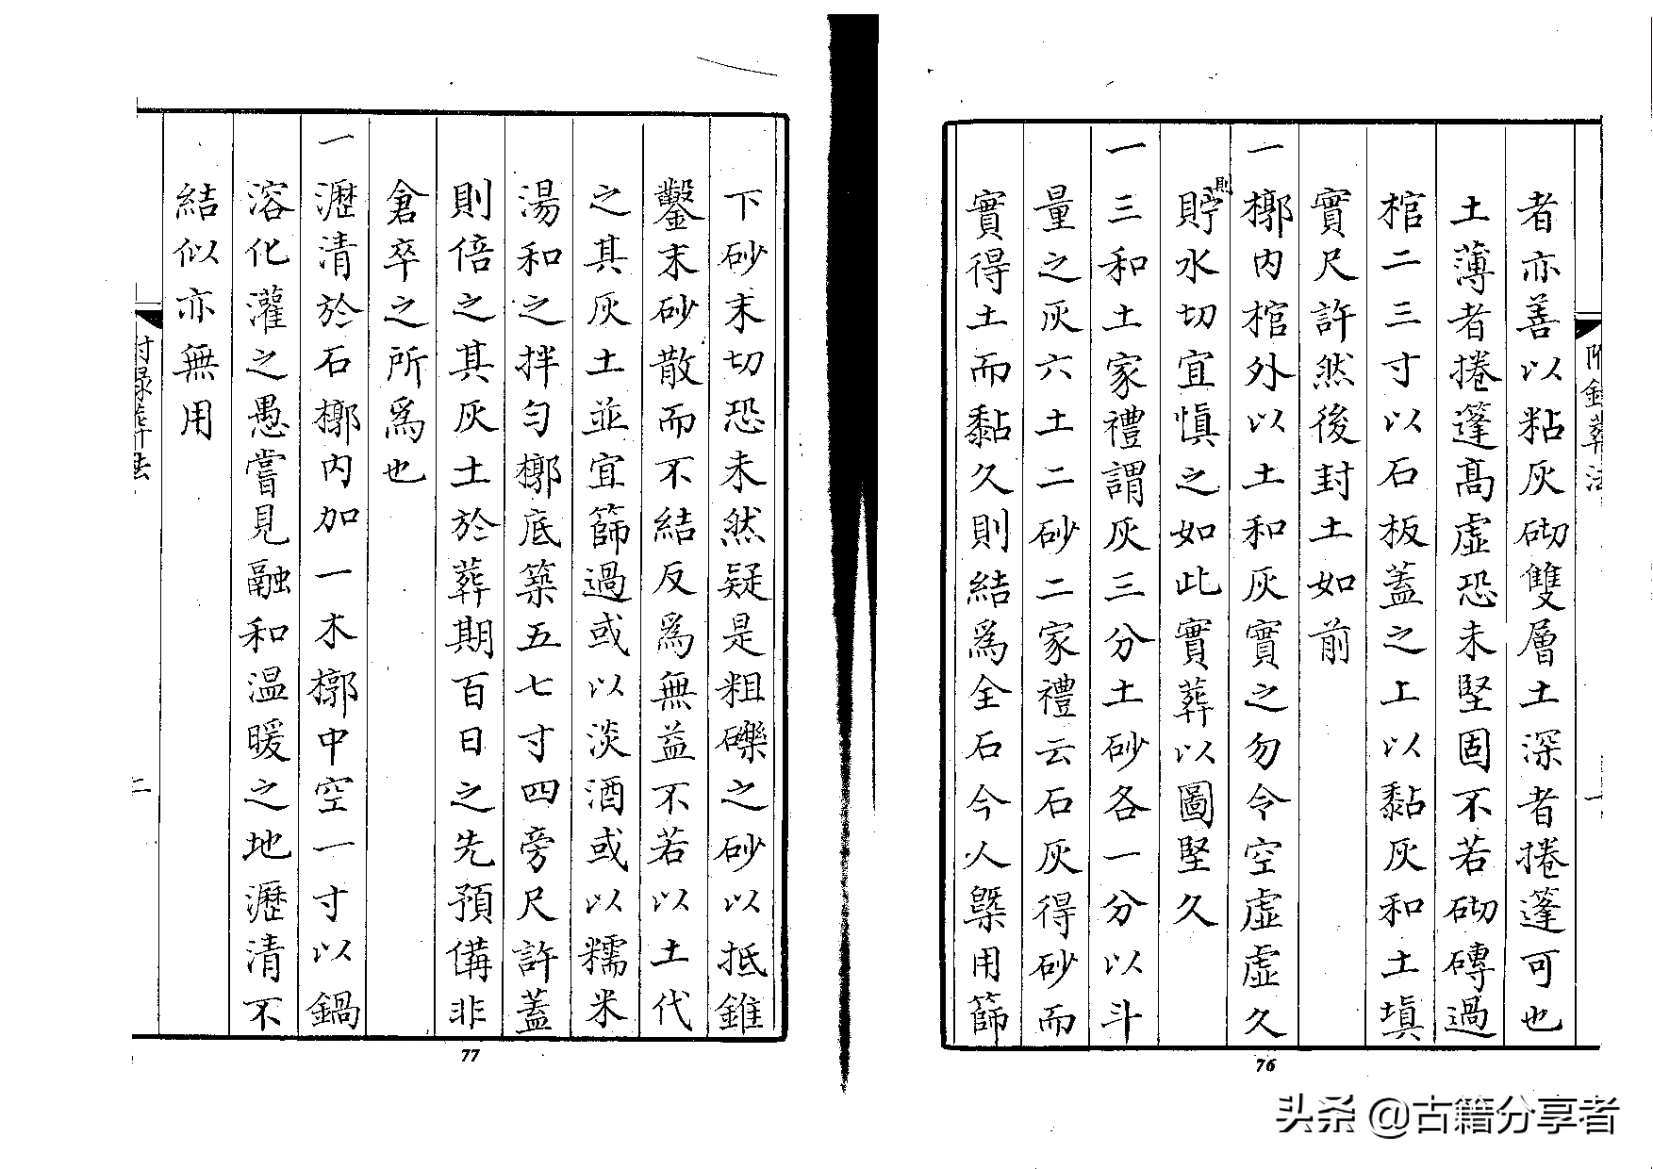 附錄葬法
者亦善以粘灰砌雙層土深者捲蓬可也
土薄者捲蓬高虛恐未堅固不若砌磚過
棺二三寸以石板蓋之上以黏灰和土填
實尺許然後封土如前
一槨內棺外以土和灰實之勿令空虛虛久
則貯水切宜慎之如此實葬以圖堅久
一三和土家禮謂灰三分土砂各一分以斗
量之灰六土二砂二家禮云石灰得砂而
實得土而黏久則結爲全石今人槩用篩
76
下砂末切恐未然疑是粗礫之砂以抵錐
鑿末砂散而不結反爲無益不若以土代
之其灰土並宜篩過或以淡酒或以糯米
湯和之拌勻槨底築五七寸四旁尺許蓋
則倍之其灰土於葬期百日之先預備非
倉卒之所爲也
一瀝清於石槨內加一木槨中空一寸以鍋
溶化灌之愚嘗見融和温暖之地瀝清不
結似亦無用
附錄葬法
二
77
头条 @古籍分享者